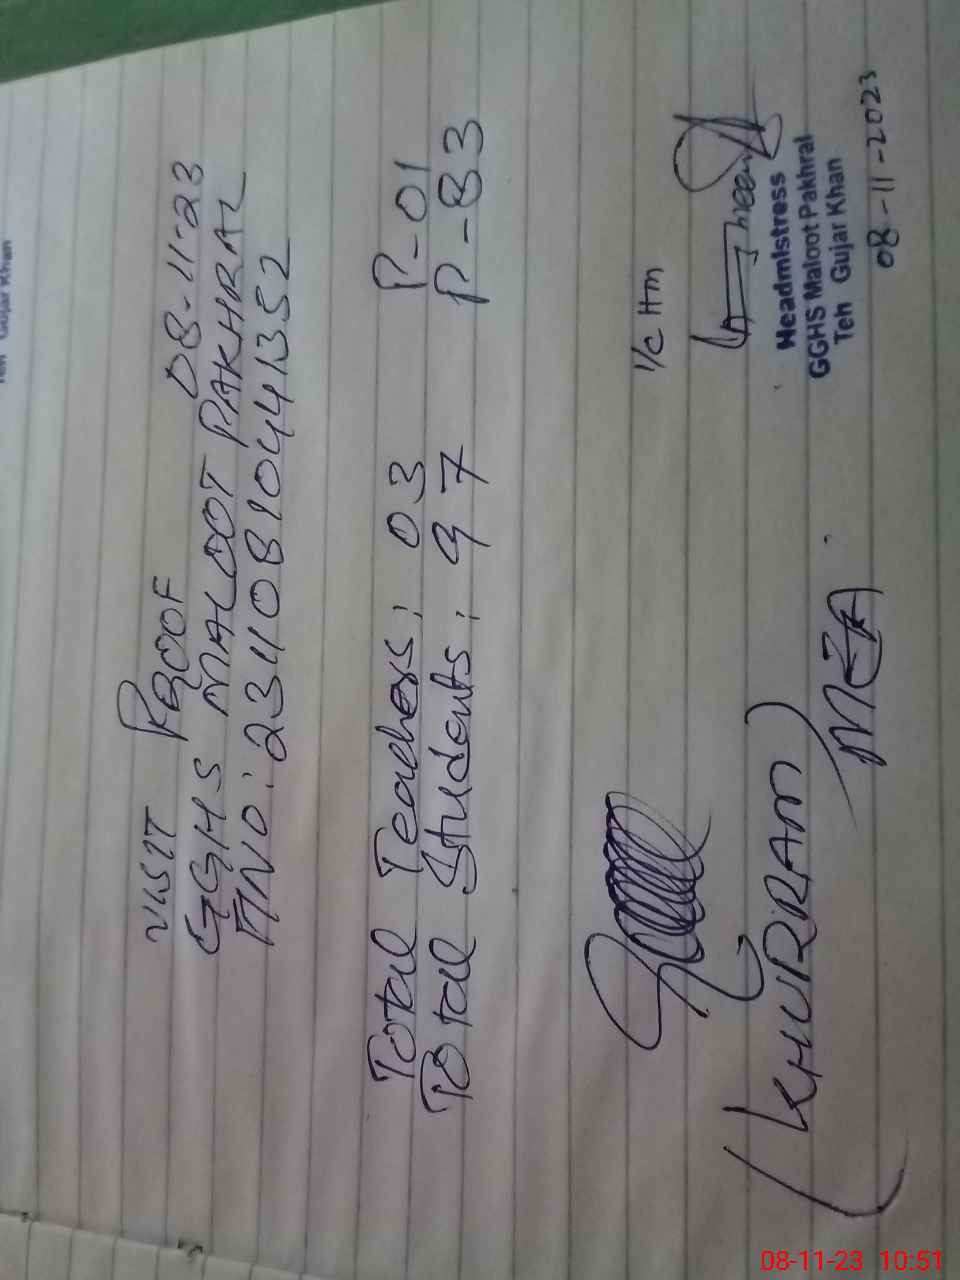 VISIT PROOF 08-11-23
GGHS MALOOT PAKHRAL
TNO: 23110810441352
Total Teachers: 03 P-01
Total Students: 97 P-83
I/C Hm
(KHURRAM)
MEA
Headmistress
GGHS Maloot Pakhral
Teh Gujar Khan
08-11-2023
Teh Gujar Khan
08-11-23 10:51